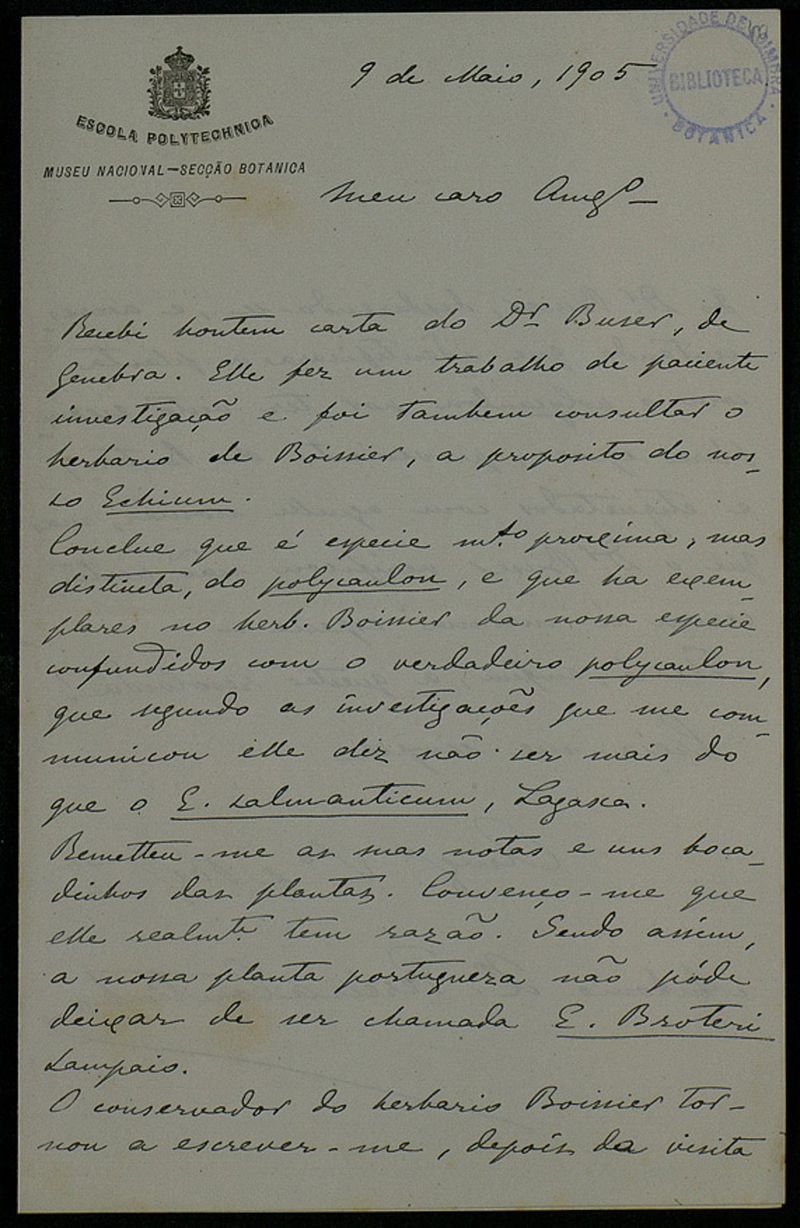 ESCOLA POLYTECHNICA
MUSEU NACIONAL—SECÇÃO BOTANICA
UNIVERSIDADE DE COIMBRA
BIBLIOTECA
BOTANICA
9 de Maio, 1905
Meu caro Amgº—
Recebi hontem carta do Dr Buser, de
Genebra. Elle fez um trabalho de paciente
investigação e foi tambem consultar o
herbario de Boissier, a proposito do nos-
so Echium.
Conclue que é especie mto proxima, mas
distincta, do polycaulon, e que ha exem-
plares no herb. Boissier da nossa especie
confundidos com o verdadeiro polycaulon,
que segundo as investigações que me com-
municou elle diz não ser mais do
que o E. salmanticum, Lagasca.
Remetteu-me as suas notas e uns boca-
dinhos das plantas. Convenço-me que
elle realmte tem razão. Sendo assim,
a nossa planta portugueza não póde
deixar de ser chamada E. Broteri
Sampaio.
O conservador do herbario Boissier tor-
nou a escrever-me, depois da visita